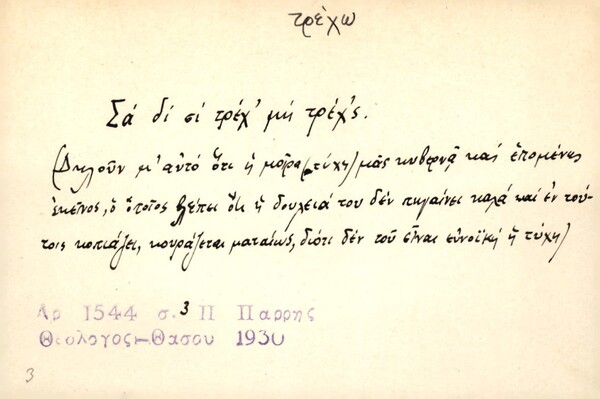 τρέχω
Σά δί σί τρέχ' μή τρέχ'ς.
(Δηλοῦν μ' αὐτό ὅτι ἡ μοῖρα (τύχη) μᾶς κυβερνᾷ καί ἑπομένως
ἐκεῖνος, ὁ ὁποῖος βλέπει ὅτι ἡ δουλειά του δέν πηγαίνει καλά καί ἐν τού-
τοις κοπιάζει, κουράζεται ματαίως, διότι δέν τοῦ εἶναι εὐνοϊκή ἡ τύχη)
Αρ 1544 σ. 3 Π Παρρης
Θεολογος–Θασου 1930
3